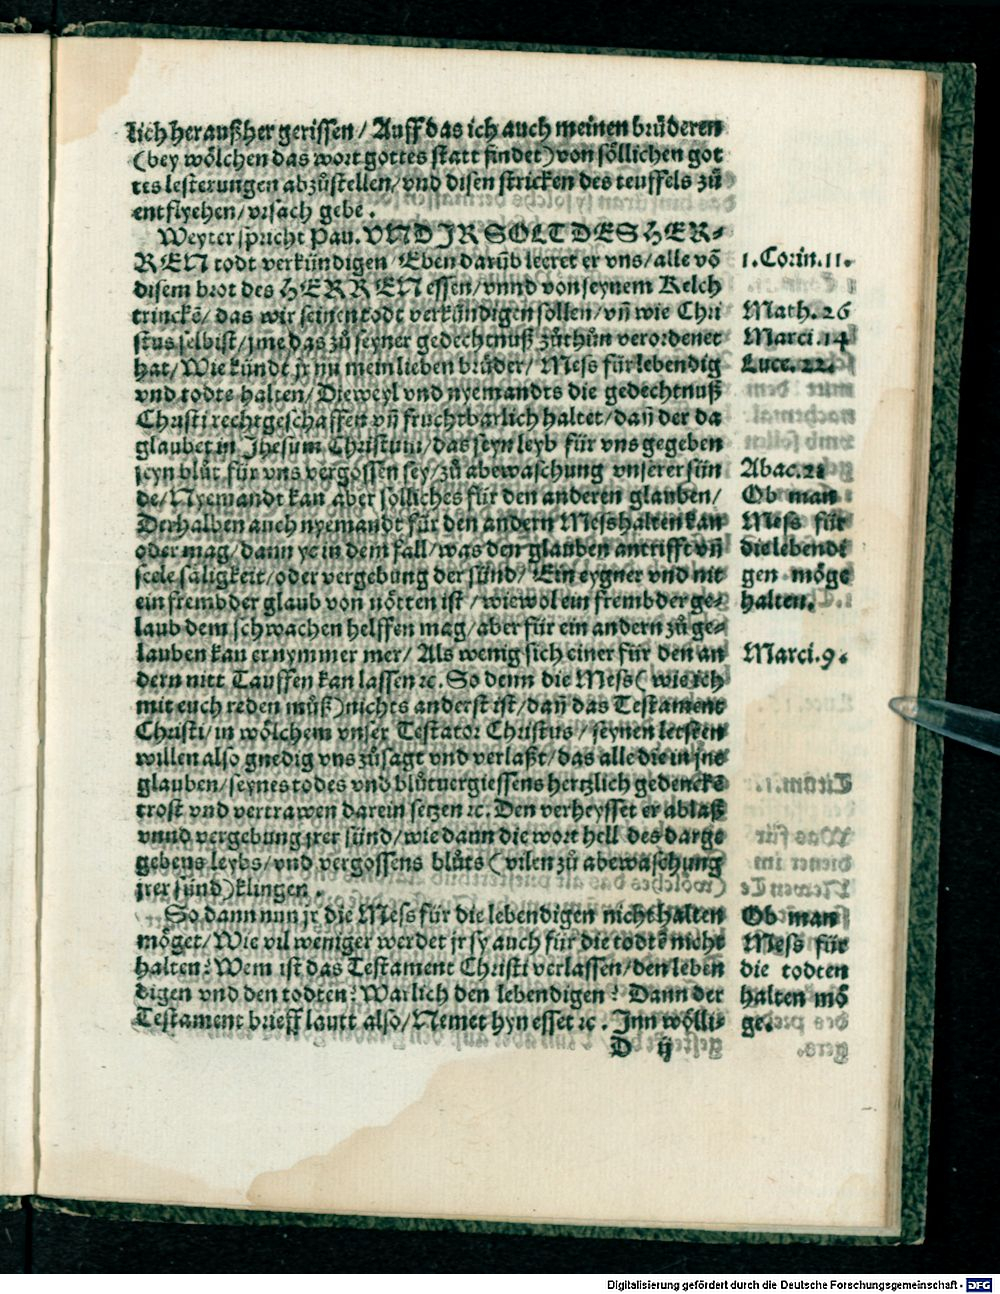 lich heraußher gerissen / Auff das ich auch meinen brůderen
(bey wölchen das wort gottes statt findet) von söllichen got
tes lesterungen abzůstellen / vnd disen stricken des teuffels zů
entflyehen / vrsach gebe.
Weyter spricht Pau. VND JR SOLT DES HER-
REN todt verkündigen / Eben darüb leeret er vns / alle vō
disem brot des HERREN essen / vnnd von seynem Kelch
trinckē / das wir seinen todt verkündigen söllen / vn̄ wie Chri
stus selbist / jme das zů seyner gedechtnuß zůthůn verordenet
hat / Wie kündt jr nū mein lieben brüder / Mess für lebendig
vnd todte halten / Dieweyl vnd nyemandts die gedechtnuß
Christi rechtgeschaffen vn̄ fruchtbarlich haltet / dan̄ der da
glaubet in Jhesum Christum / das seyn leyb für vns gegeben
seyn blůt für vns vergossen sey / zů abewaschung vnserer sün
de / Nyemandt kan aber sölliches für den anderen glauben /
Derhalben auch nyemandt für den andern Mess halten kan
oder mag / dann ye in dem fall / was den glauben antrifft vn̄
seele säligkeit / oder vergebung der sünd / Ein eygner vnd nit
ein frembder glaub von nötten ist / wiewol ein frembder ge-
laub dem schwachen helffen mag / aber für ein andern zů ge-
lauben kan er nymmer mer / Als wenig sich einer für den an
dern nitt Tauffen kan lassen ꝛc. So denn die Mess (wie ich
mit euch reden můß) nichts anderst ist / dan̄ das Testament
Christi / in wölchem vnser Testator Christus / seynen letsten
willen also gnedig vns zůsagt vnd verlaßt / das alle die in jne
glauben / seynes todes vnd blůtuergiessens hertzlich gedenckē
trost vnd vertrawen darein setzen ꝛc. Den verheysset er ablaß
vnnd vergebung jrer sünd / wie dann die wort hell des darge
gebens leybs / vnd vergossens blůts (vilen zů abewaschung
jrer sünd) klingen.
So dann nun jr die Mess für die lebendigen nicht halten
möget / Wie vil weniger werdet jr sy auch für die todtē nicht
halten? Wem ist das Testament Christi verlassen / den leben
digen vnd den todten? Warlich den lebendigen? Dann der
Testament brieff lautt also / Nemet hyn esset ꝛc. Jnn wölli-
D ij
1. Corin. 11.
Math. 26
Marci. 14
Luce. 22.
Abac. 2
Ob man
Mess für
die lebendi
gen möge
halten.
Marci. 9.
Ob man
Mess für
die todten
halten mö
ge.
Digitalisierung gefördert durch die Deutsche Forschungsgemeinschaft - DFG